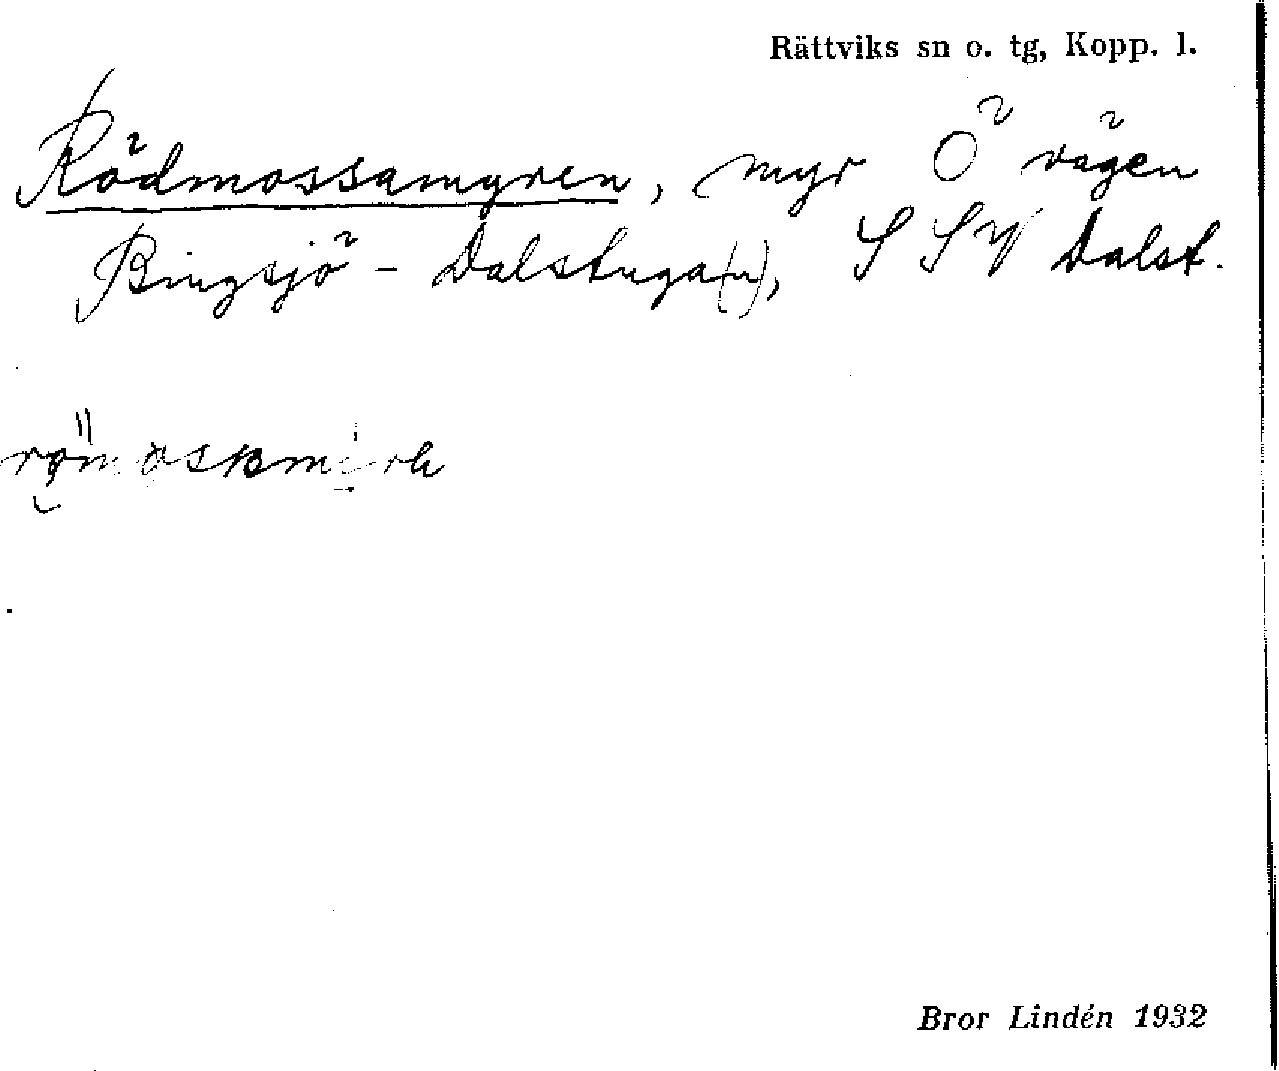 Rättviks sn o. tg, Kopp. l.
Rödmossamyren, myr Ö vägen
Bingsjö - Dalstuga(n), SSV Dalst.
Bror Lindén 1932